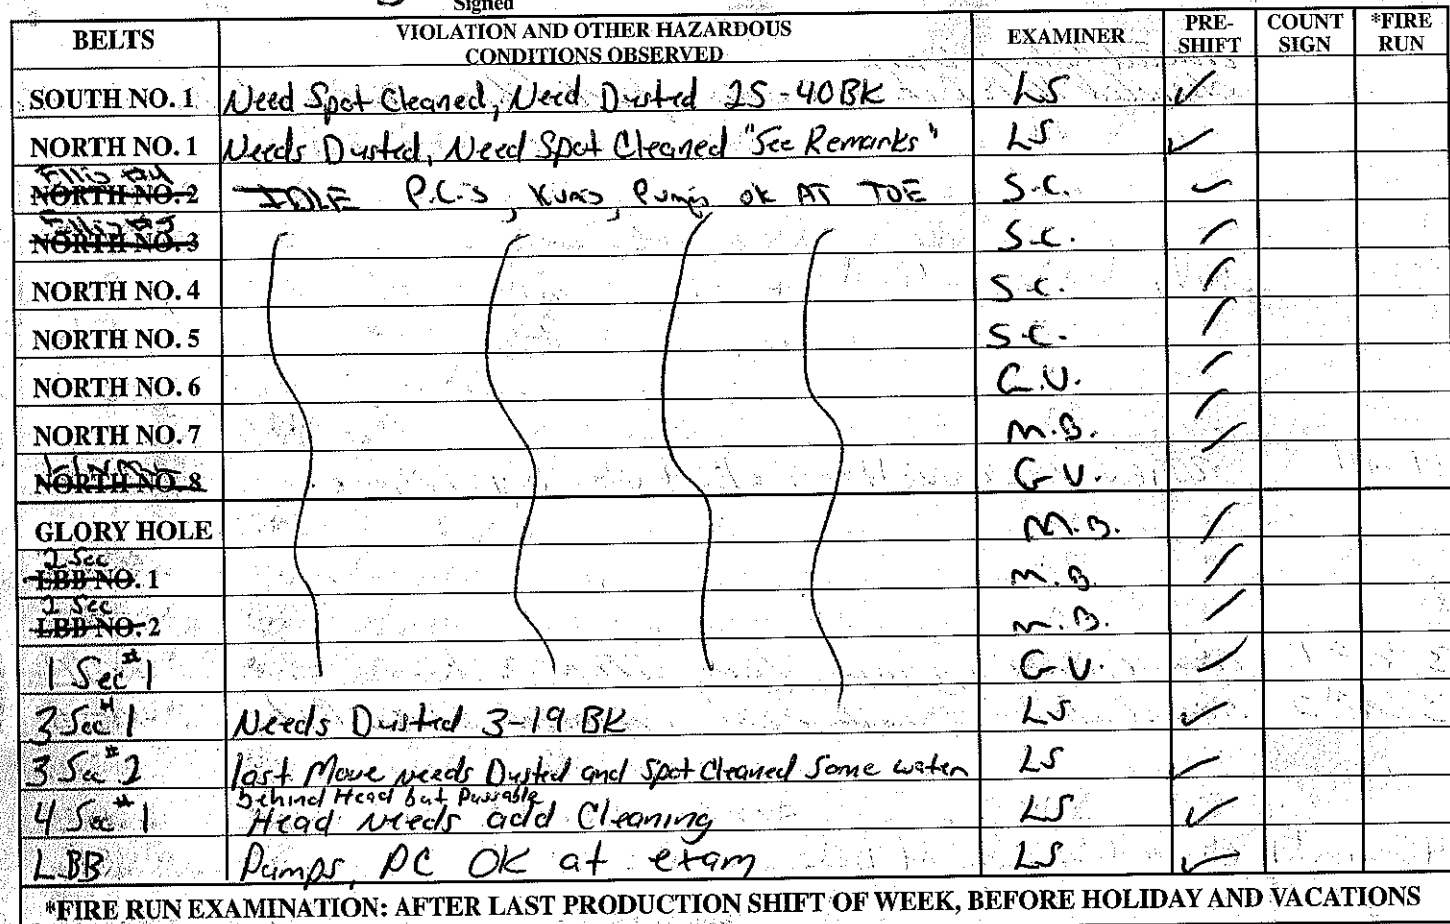 Signed
BELTS VIOLATION AND OTHER HAZARDOUS CONDITIONS OBSERVED EXAMINER PRE-SHIFT COUNT SIGN *FIRE RUN
SOUTH NO. 1 Need Spot Cleaned, Need Dusted 25-40 BK LS ✓
NORTH NO. 1 Needs Dusted, Need Spot Cleaned "See Remarks" LS ✓
Ellis #4
NORTH NO. 2 IDLE P.C.'s, Pumps ok AT TOE S.C. ✓
Ellis
NORTH NO. 3 S.C. ✓
NORTH NO. 4 S.C. ✓
NORTH NO. 5 S.C. ✓
NORTH NO. 6 G.V. ✓
NORTH NO. 7 M.B. ✓
NORTH NO. 8 G.V. ✓
GLORY HOLE M.B. ✓
2 Sec
LBB NO. 1 M.B. ✓
2 Sec
LBB NO. 2 M.B. ✓
1 Sec #1 G.V. ✓
3 Sec #1 Needs Dusted 3-19 BK LS ✓
3 Sec #2 last Move needs Dusted and Spot Cleaned Some water LS ✓
behind Head but Passable
4 Sec #1 Head needs add Cleaning LS ✓
LBB Pumps, PC OK at exam LS ✓
*FIRE RUN EXAMINATION: AFTER LAST PRODUCTION SHIFT OF WEEK, BEFORE HOLIDAY AND VACATIONS